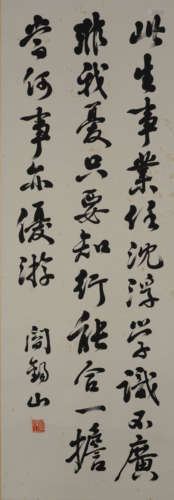 此生事業任沈浮学識不廣
非我憂只要知行能合一擔
當何事亦優游
閻錫山